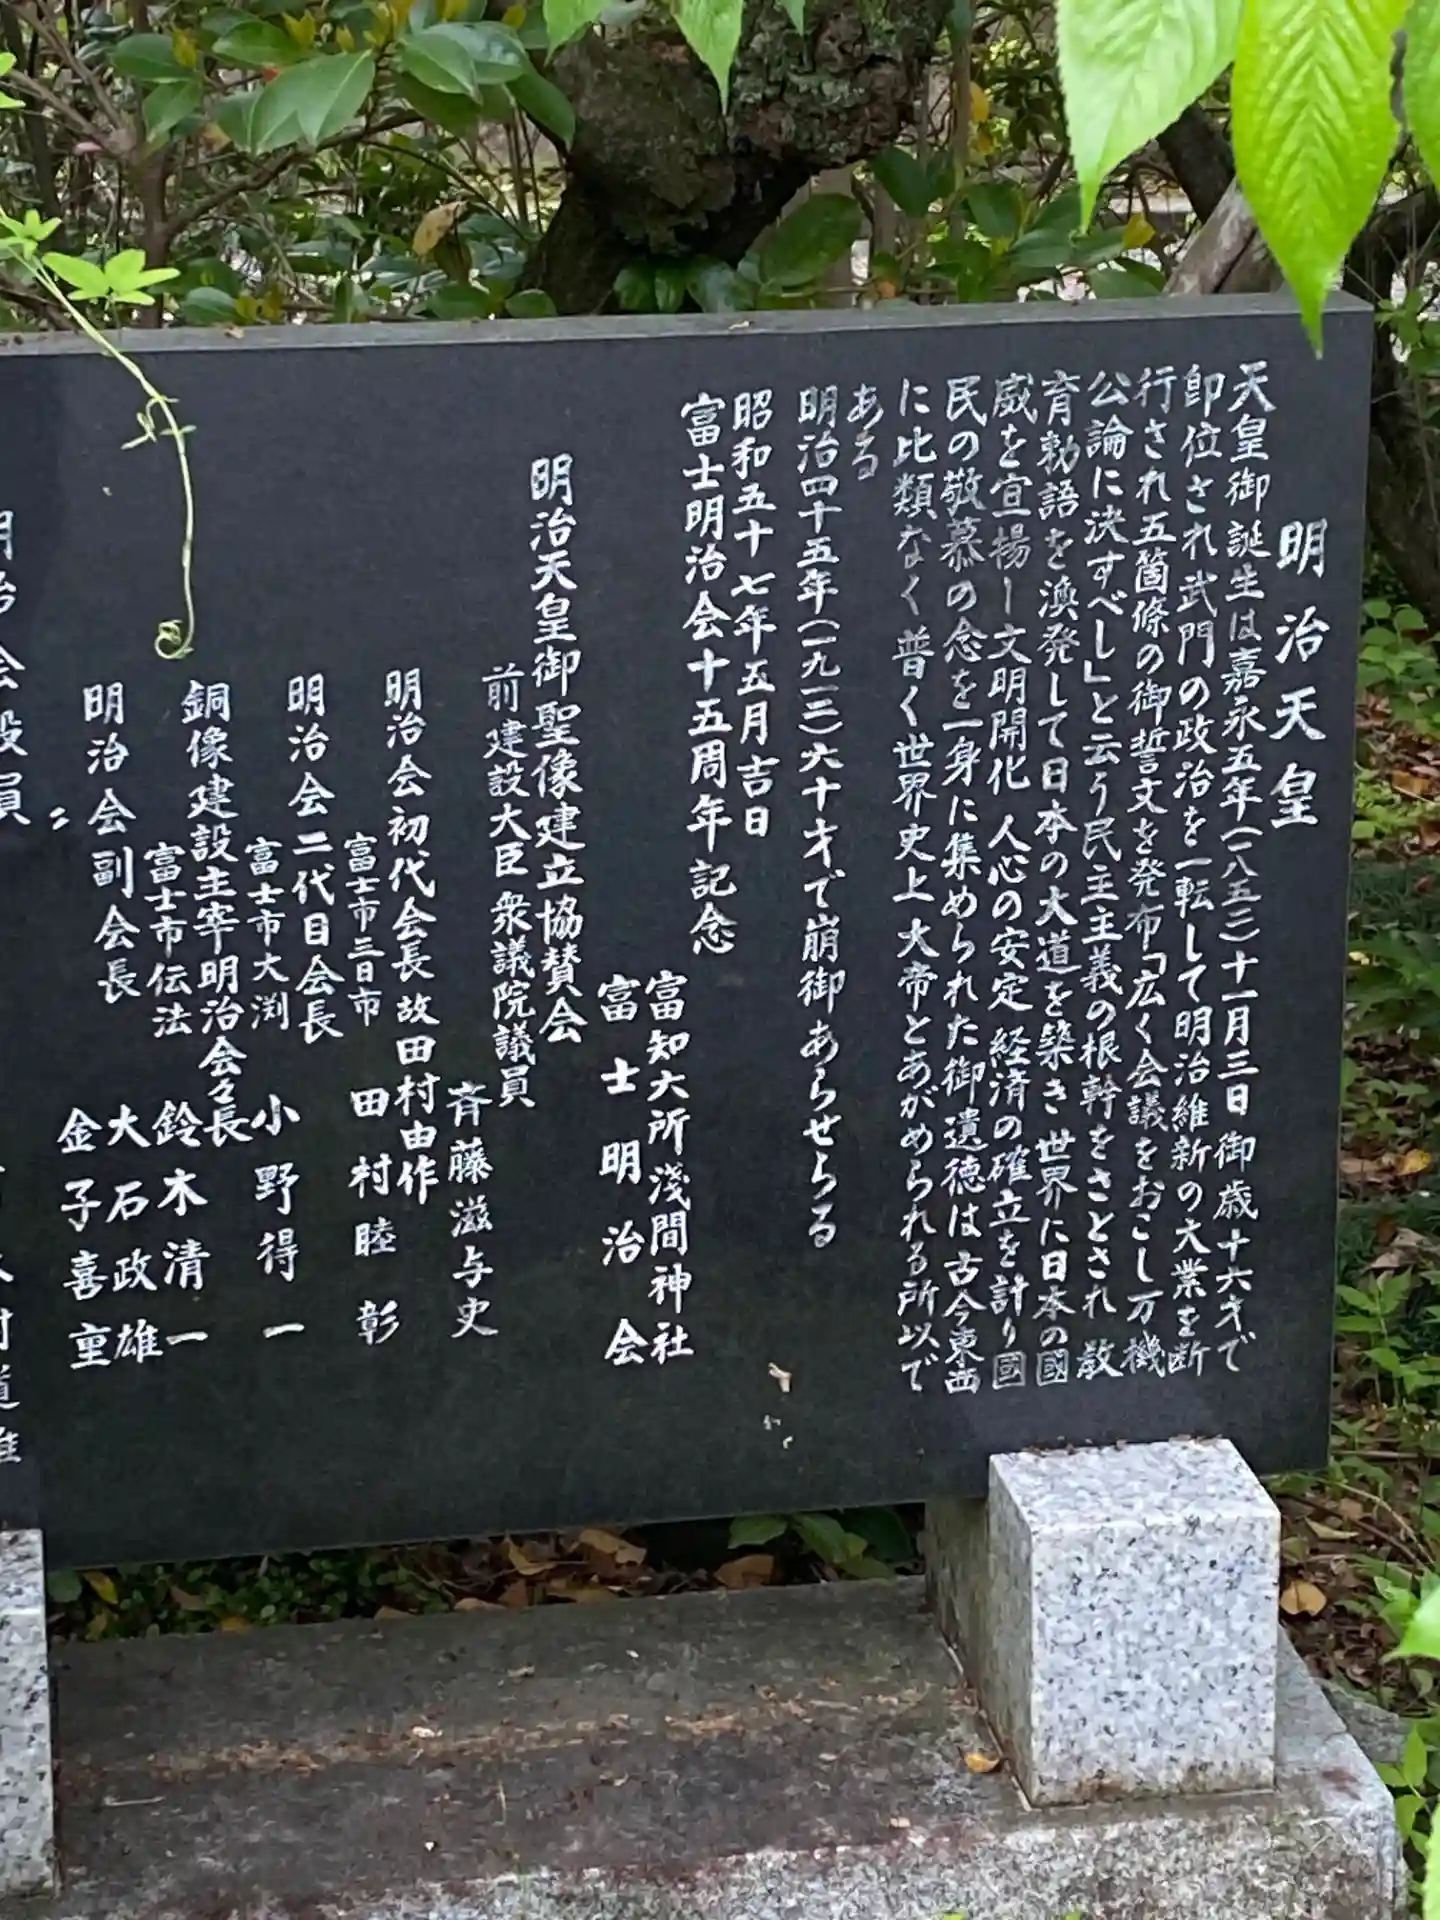 明治天皇
天皇御誕生は嘉永五年(一八五二)十一月三日御歳十六才で
即位され武門の政治を一転して明治維新の大業を断
行され五箇條の御誓文を発布「広く会議をおこし万機
公論に決すべし」と云う民主主義の根幹をさとされ教
育勅語を渙発して日本の大道を築き世界に日本の國
威を宣揚し文明開化 人心の安定 経済の確立を計り國
民の敬慕の念を一身に集められた御遺徳は古今東西
に比類なく普く世界史上大帝とあがめられる所以で
ある
明治四十五年(一九一二)六十才で崩御あらせらる
昭和五十七年五月吉日
富士明治会十五周年記念
富知大所浅間神社
富士明治会
明治天皇御聖像建立協賛会
前建設大臣衆議院議員
斉藤滋与史
明治会初代会長故田村由作
富士市三日市 田村睦彰
明治会二代目会長
富士市大渕 小野得一
銅像建設主宰明治会々長
富士市伝法 鈴木清一
明治会副会長 大石政雄
〃 金子喜重
明治会役員